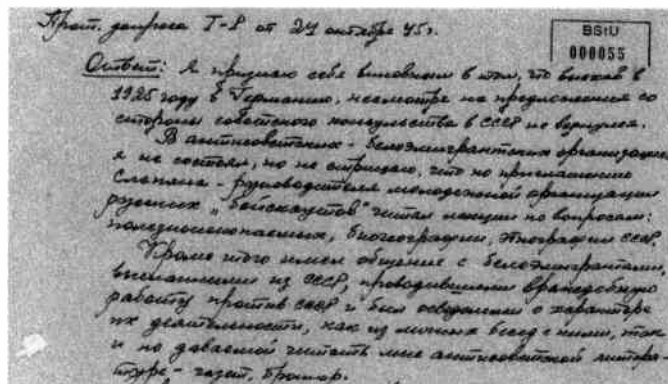 Прот. допроса Т-Р от 24 октября 45 г.
BStU
000055
Ответ: Я признаю себя виновным в том, что выехав в
1925 году в Германию, несмотря на предложения со
стороны советского консульства в СССР не вернулся.
В антисоветских - белоэмигрантских организациях
я не состоял, но не отрицаю, что по приглашению
Слапяна - руководителя молодежной организации
русских „бойскаутов" читал лекции по вопросам:
полезно ископаемых, биогеографии, этнографии СССР.
Кроме того имел общение с белоэмигрантами,
высланными из СССР, проводившими враждебную
работу против СССР и был осведомлен о характере
их деятельности, как из личных бесед с ними, так
и по даваемой читать мне антисоветской литера-
туре - газет, брошюр.